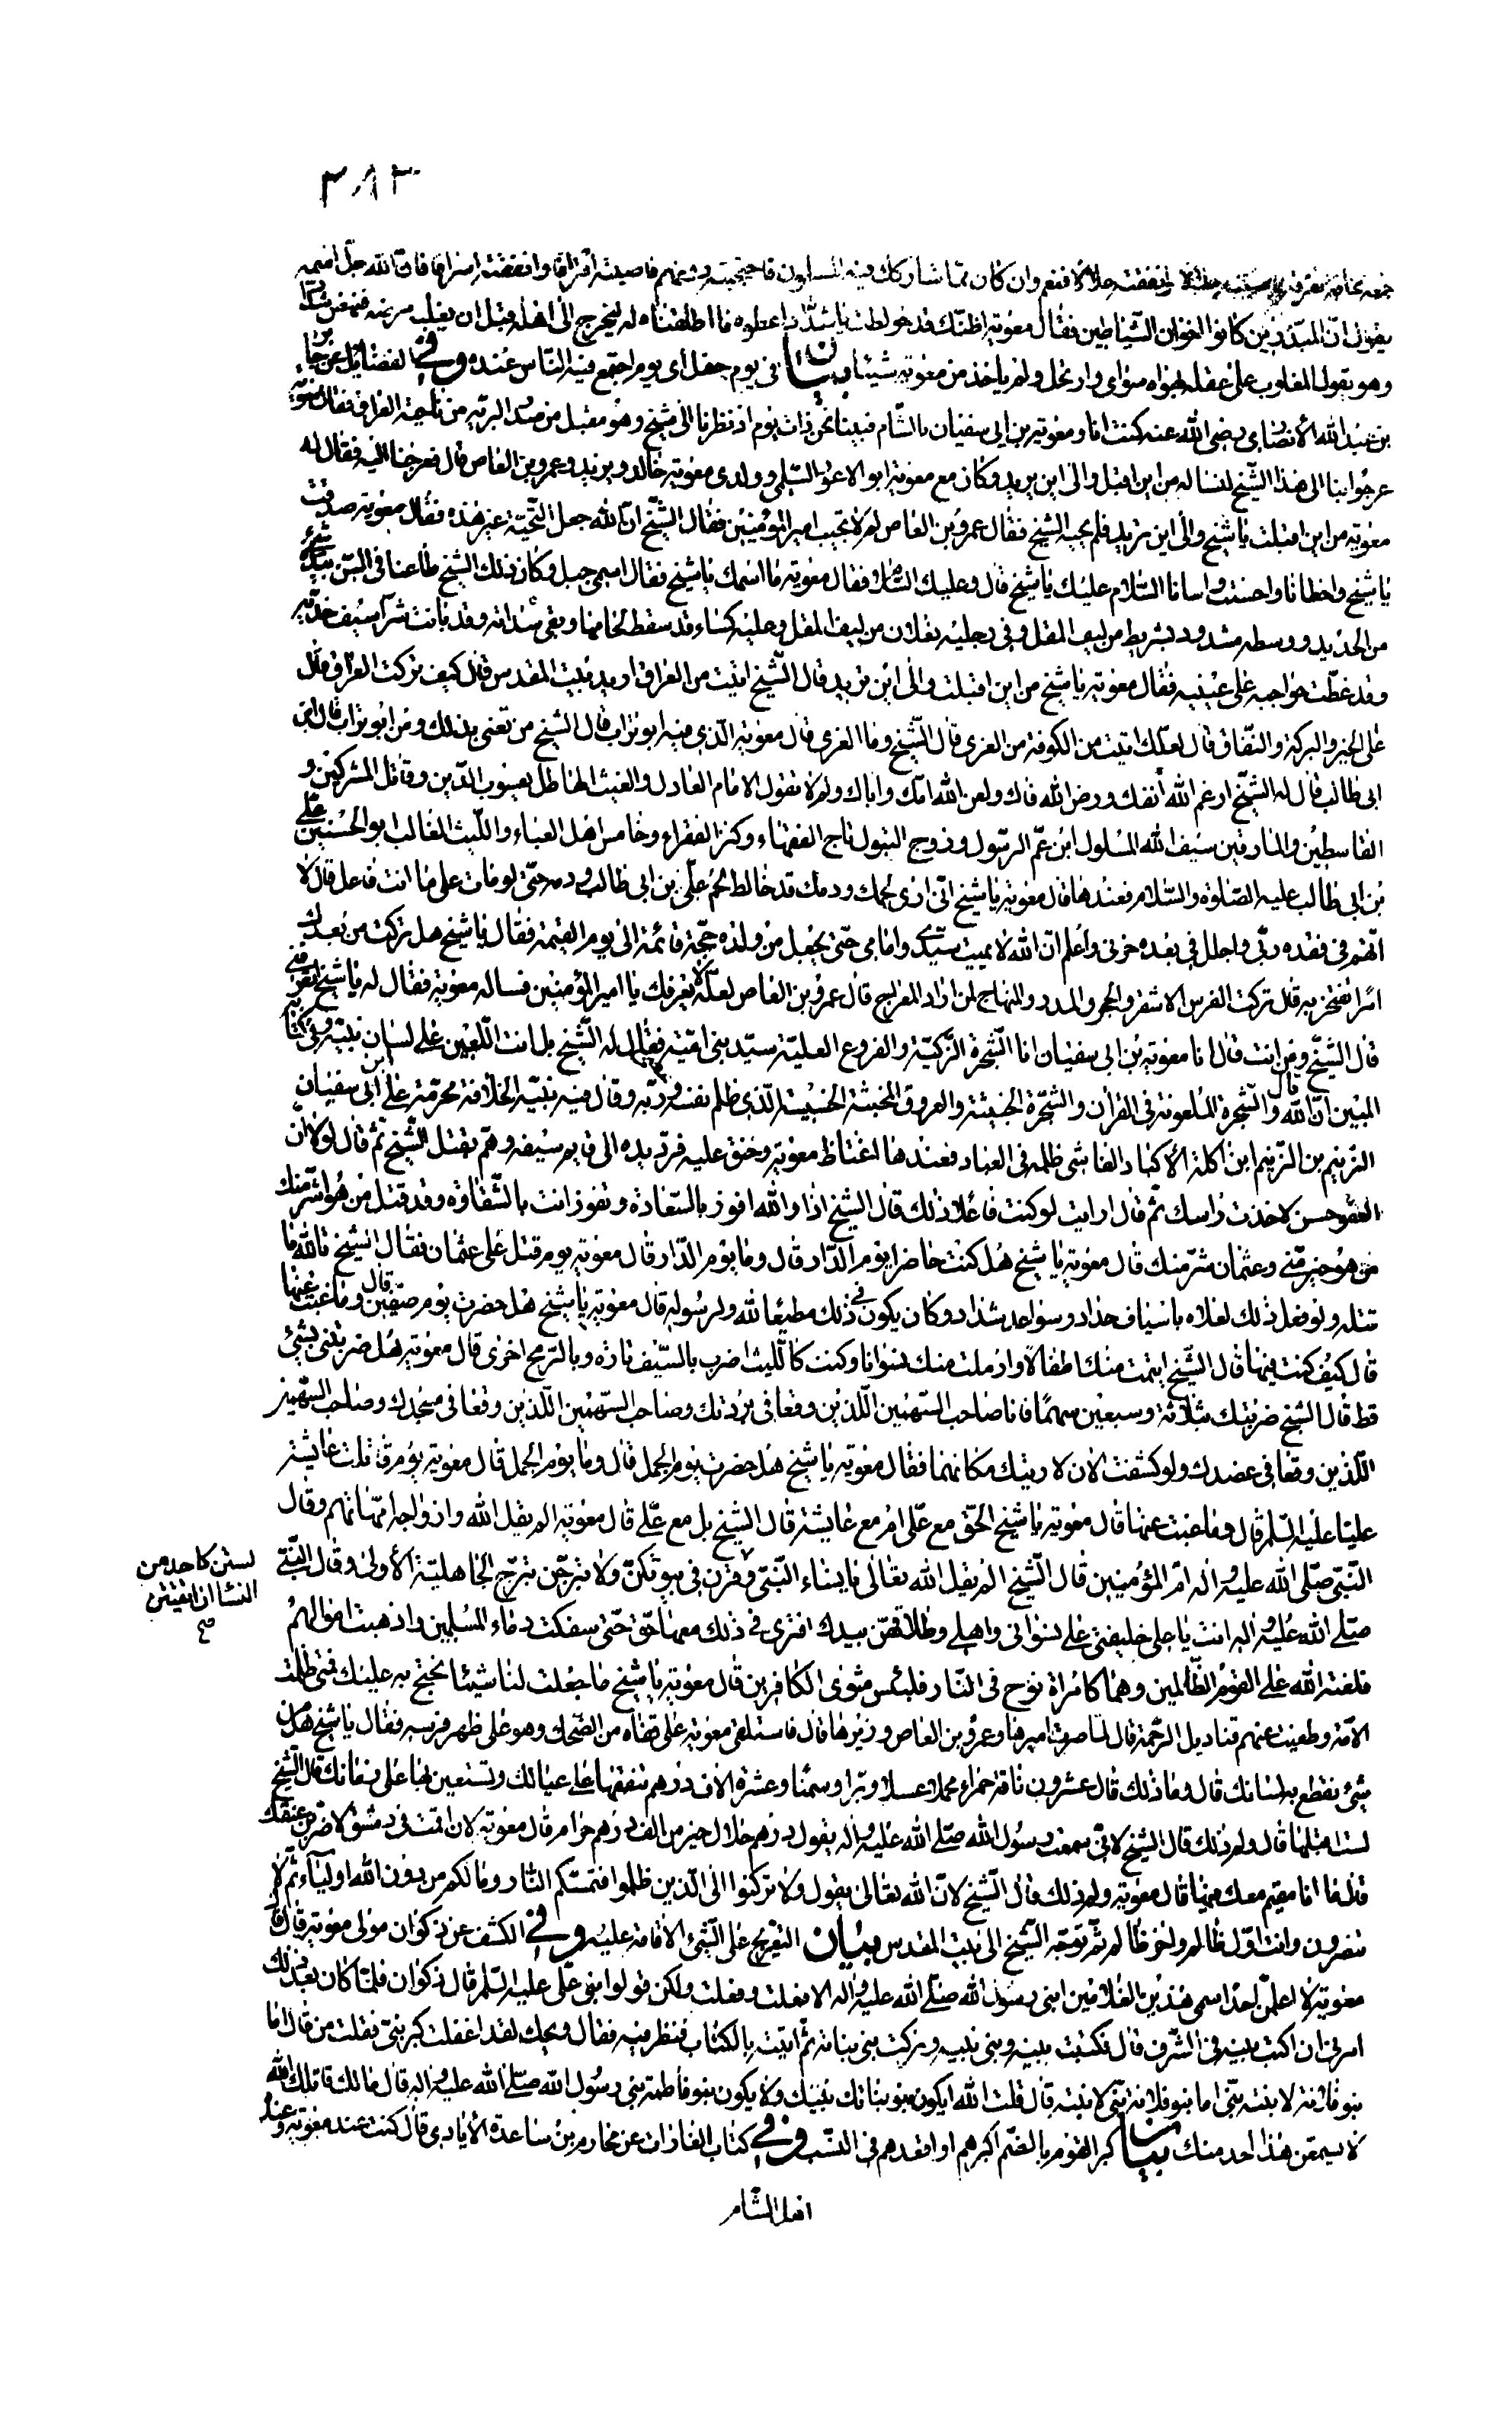 ٣٨٣
وان كان مما شاركك فيه المسلمون فاحتجبته دونهم فاصبته اقترافا وانفقته اسرافا فان الله جل اسمه
يقول ان المبذرين كانوا اخوان الشياطين فقال معوية اظنك قد خولطت يا شداد اعطوه ما اطلقناه له ليخرج الى اهله قبل ان يغلبه مرضه فنهض شداد
وهو يقول المغلوب على عقله بهواه سواى وارتحل ولم ياخذ من معوية شيئا بيان فى يوم حفل اى يوم اجتمع فيه الناس عنده وفى الفضائل عن جابر
بن عبد الله الأنصارى رضى الله عنه كنت انا ومعوية بن ابى سفيان بالشام فبينا نحن ذات يوم اذ نظرنا الى شيخ وهو مقبل من صدر البرية من ناحية العراق فقال معوية
عرجوا بنا الى هذا الشيخ لنساله من اين اقبل والى اين يريد وكان مع معوية ابو الاعور السلمى وولدى معوية خالد ويزيد وعمرو بن العاص قال فعرجنا اليه فقال له
معوية من اين اقبلت يا شيخ والى اين تريد فلم يجبه الشيخ فقال عمرو بن العاص لم لا تجيب امير المؤمنين فقال الشيخ ان الله جعل التحية غير هذه فقال معوية صدقت
يا شيخ واخطانا واحسنت واسانا السلام عليك يا شيخ قال وعليك السلام فقال معوية ما اسمك يا شيخ فقال اسمى جبل وكان ذلك الشيخ طاعنا فى السن بيده شىء
من الحديد ووسطه مشدود بشريط من ليف المقل وفى رجليه نعلان من ليف المقل وعليه كساء قد سقط لحامها وبقى سداته وقد بانت شراسيف خديه
وقد غطت حواجبه على عينيه فقال معوية يا شيخ من اين اقبلت والى اين تريد قال الشيخ اتيت من العراق اريد بيت المقدس قال كيف تركت العراق قال
على الخير والبركة والنفاق قال لعلك اتيت من الكوفة من الغرى قال الشيخ وما الغرى قال معوية الذى فيه ابو تراب قال الشيخ من تعنى بذلك ومن ابو تراب قال ابن
ابى طالب قال له الشيخ ارغم الله أنفك ورض الله فاك ولعن الله امك واباك ولم لا تقول الامام العادل والغيث الهاطل يعسوب الدين وقاتل المشركين و
القاسطين والمارقين سيف الله المسلول ابن عم الرسول وزوج البتول تاج الفقهاء وكنز الفقراء وخامس اهل العباء والليث الغالب ابو الحسنين على
بن ابى طالب عليه الصلوة والسلام فعندها قال معوية يا شيخ انى ارى لحمك ودمك قد خالط لحم على بن ابى طالب ودمه حتى لو مات على ما انت فاعل قال لا
اتهم فى فقده ربى واجلل فى بعده حزنى واعلم ان الله لا يميت سيدى وامامى حتى يجعل من ولده حجة قائمة الى يوم القيمة فقال يا شيخ هل تركت من بعدك
امرا تفتخر به قال تركت الفرس الاشقر والحجر والمدر والمنهاج لمن اراد المعراج قال عمرو بن العاص لعله لا يعرفك يا امير المؤمنين فساله معوية فقال له يا شيخ اتعرفنى
قال الشيخ ومن انت قال انا معوية بن ابى سفيان انا الشجرة الزكية والفروع العلية سيد بنى امية فقال له الشيخ بل انت اللعين على لسان نبيه وفى كتابه
المبين ان الله قال والشجرة الملعونة فى القرآن والشجرة الخبيثة والعروق المخبثة الخسيسة الذى ظلم نفسه وربه وقال فيه نبيه الخلافة محرمة على ابن ابى سفيان
الزنيم بن الزنيم ابن آكلة الأكباد الفاشى ظلمه فى العباد فعندها اغتاظ معوية وخنق عليه فرد يده الى قايم سيفه وهم بقتل الشيخ ثم قال لولا ان
العفو حسن لاخذت راسك ثم قال ارايت لو كنت فاعلا ذلك قال الشيخ اذا والله افوز بالسعادة وتفوز انت بالشقاوة وقد قتل من هو اشر منك
من هو خير منى وعثمان شر منك قال معوية يا شيخ هل كنت حاضرا يوم الدار قال وما يوم الدار قال معوية يوم قتل على عثمان فقال الشيخ تالله ما
قتله ولو فعل ذلك لعلاه باسياف حداد وسواعد شداد وكان يكون فى ذلك مطيعا لله ولرسوله قال معوية يا شيخ هل حضرت يوم صفين قال وما غبت عنها
قال كيف كنت فيها قال الشيخ ايتمت منك اطفالا وارملت منك نسوانا وكنت كالليث اضرب بالسيف تارة وبالرمح اخرى قال معوية هل ضربتنى بشىء
قط قال الشيخ ضربتك بثلاثة وسبعين سهما فانا صاحب السهمين اللذين وقعا فى بردتك وصاحب السهمين اللذين وقعا فى مسجدك وصاحب السهمين
اللذين وقعا فى عضدك ولو كشفت الان لاريتك مكانهما فقال معوية يا شيخ هل حضرت يوم الجمل قال وما يوم الجمل قال معوية يوم قاتلت عايشة
عليا عليه السلم قال وما غبت عنها قال معوية يا شيخ الحق مع على ام مع عايشة قال الشيخ بل مع على قال معوية الم يقل الله وازواجه امهاتهم وقال
النبى صلى الله عليه واله ام المؤمنين قال الشيخ الم يقل الله تعالى يا نساء النبى وقرن فى بيوتكن ولا تبرجن تبرج الجاهلية الأولى وقال النبى
لستن كاحد من
النساء ان اتقيتن
صح
صلى الله عليه واله انت يا على خليفتى على نسوانى واهلى وطلاقهن بيدك افترى فى ذلك معها حق حتى سفكت دماء المسلمين واذهبت اموالهم
فلعنة الله على القوم الظالمين وهما كامراة نوح فى النار فلبئس مثوى الكافرين قال معوية يا شيخ ما جعلت لنا شيئا نحتج به عليك فمتى ظلمت
الامة وطفيت عنهم قناديل الرحمة قال لما صرت اميرها وعمرو بن العاص وزيرها قال فاستلقى معوية على قفاه من الضحك وهو على ظهر فرسه فقال يا شيخ هل من
شىء نقطع به لسانك قال وما ذلك قال عشرون ناقة حمراء محملة عسلا وبرا وسمنا وعشرة الاف درهم تنفقها على عيالك وتستعين بها على زمانك قال الشيخ
لست اقبلها قال ولم ذلك قال الشيخ لانى سمعت رسول الله صلى الله عليه واله يقول درهم حلال خير من الف درهم حرام قال معوية لان اقمت فى دمشق لاضربن عنقك
قال ما انا مقيم معك فيها قال معوية ولم ذلك قال الشيخ لان الله تعالى يقول ولا تركنوا الى الذين ظلموا فتمسكم النار وما لكم من دون الله اولياء ثم لا
تنصرون وانت اول ظالم واخر ظالم ثم توجه الشيخ الى بيت المقدس بيان التعريج على الشىء الاقامة عليه وفى الكشف عن ذكوان مولى معوية قال قال
معوية لا اعلمن احدا سمى هذين الغلامين ابنى رسول الله صلى الله عليه واله الا فعلت وفعلت ولكن قولوا ابنى على عليه السلم قال ذكوان فلما كان بعد ذلك
امرنى ان اكتب بنيه فى الشرف قال فكتبت بنيه وبنى بنيه وتركت بنى بناته ثم اتيته بالكتاب فنظر فيه فقال ويحك لقد اغفلت كبر بنى فقلت من قال اما
بنو فلانة لابنته بنى اما بنو فلانة بنى لابنته قال قلت الله ايكون بنو بناتك بنيك ولا يكون بنو فاطمة بنى رسول الله صلى الله عليه واله قال مالك قاتلك الله
لا يسمعن هذا احد منك بيان كبر القوم بالضم اكبرهم او اقعدهم فى النسب وفى كتاب الغارات عن مخارم بن ساعدة الأيادى قال كنت عند معوية وعنده
اهل الشام